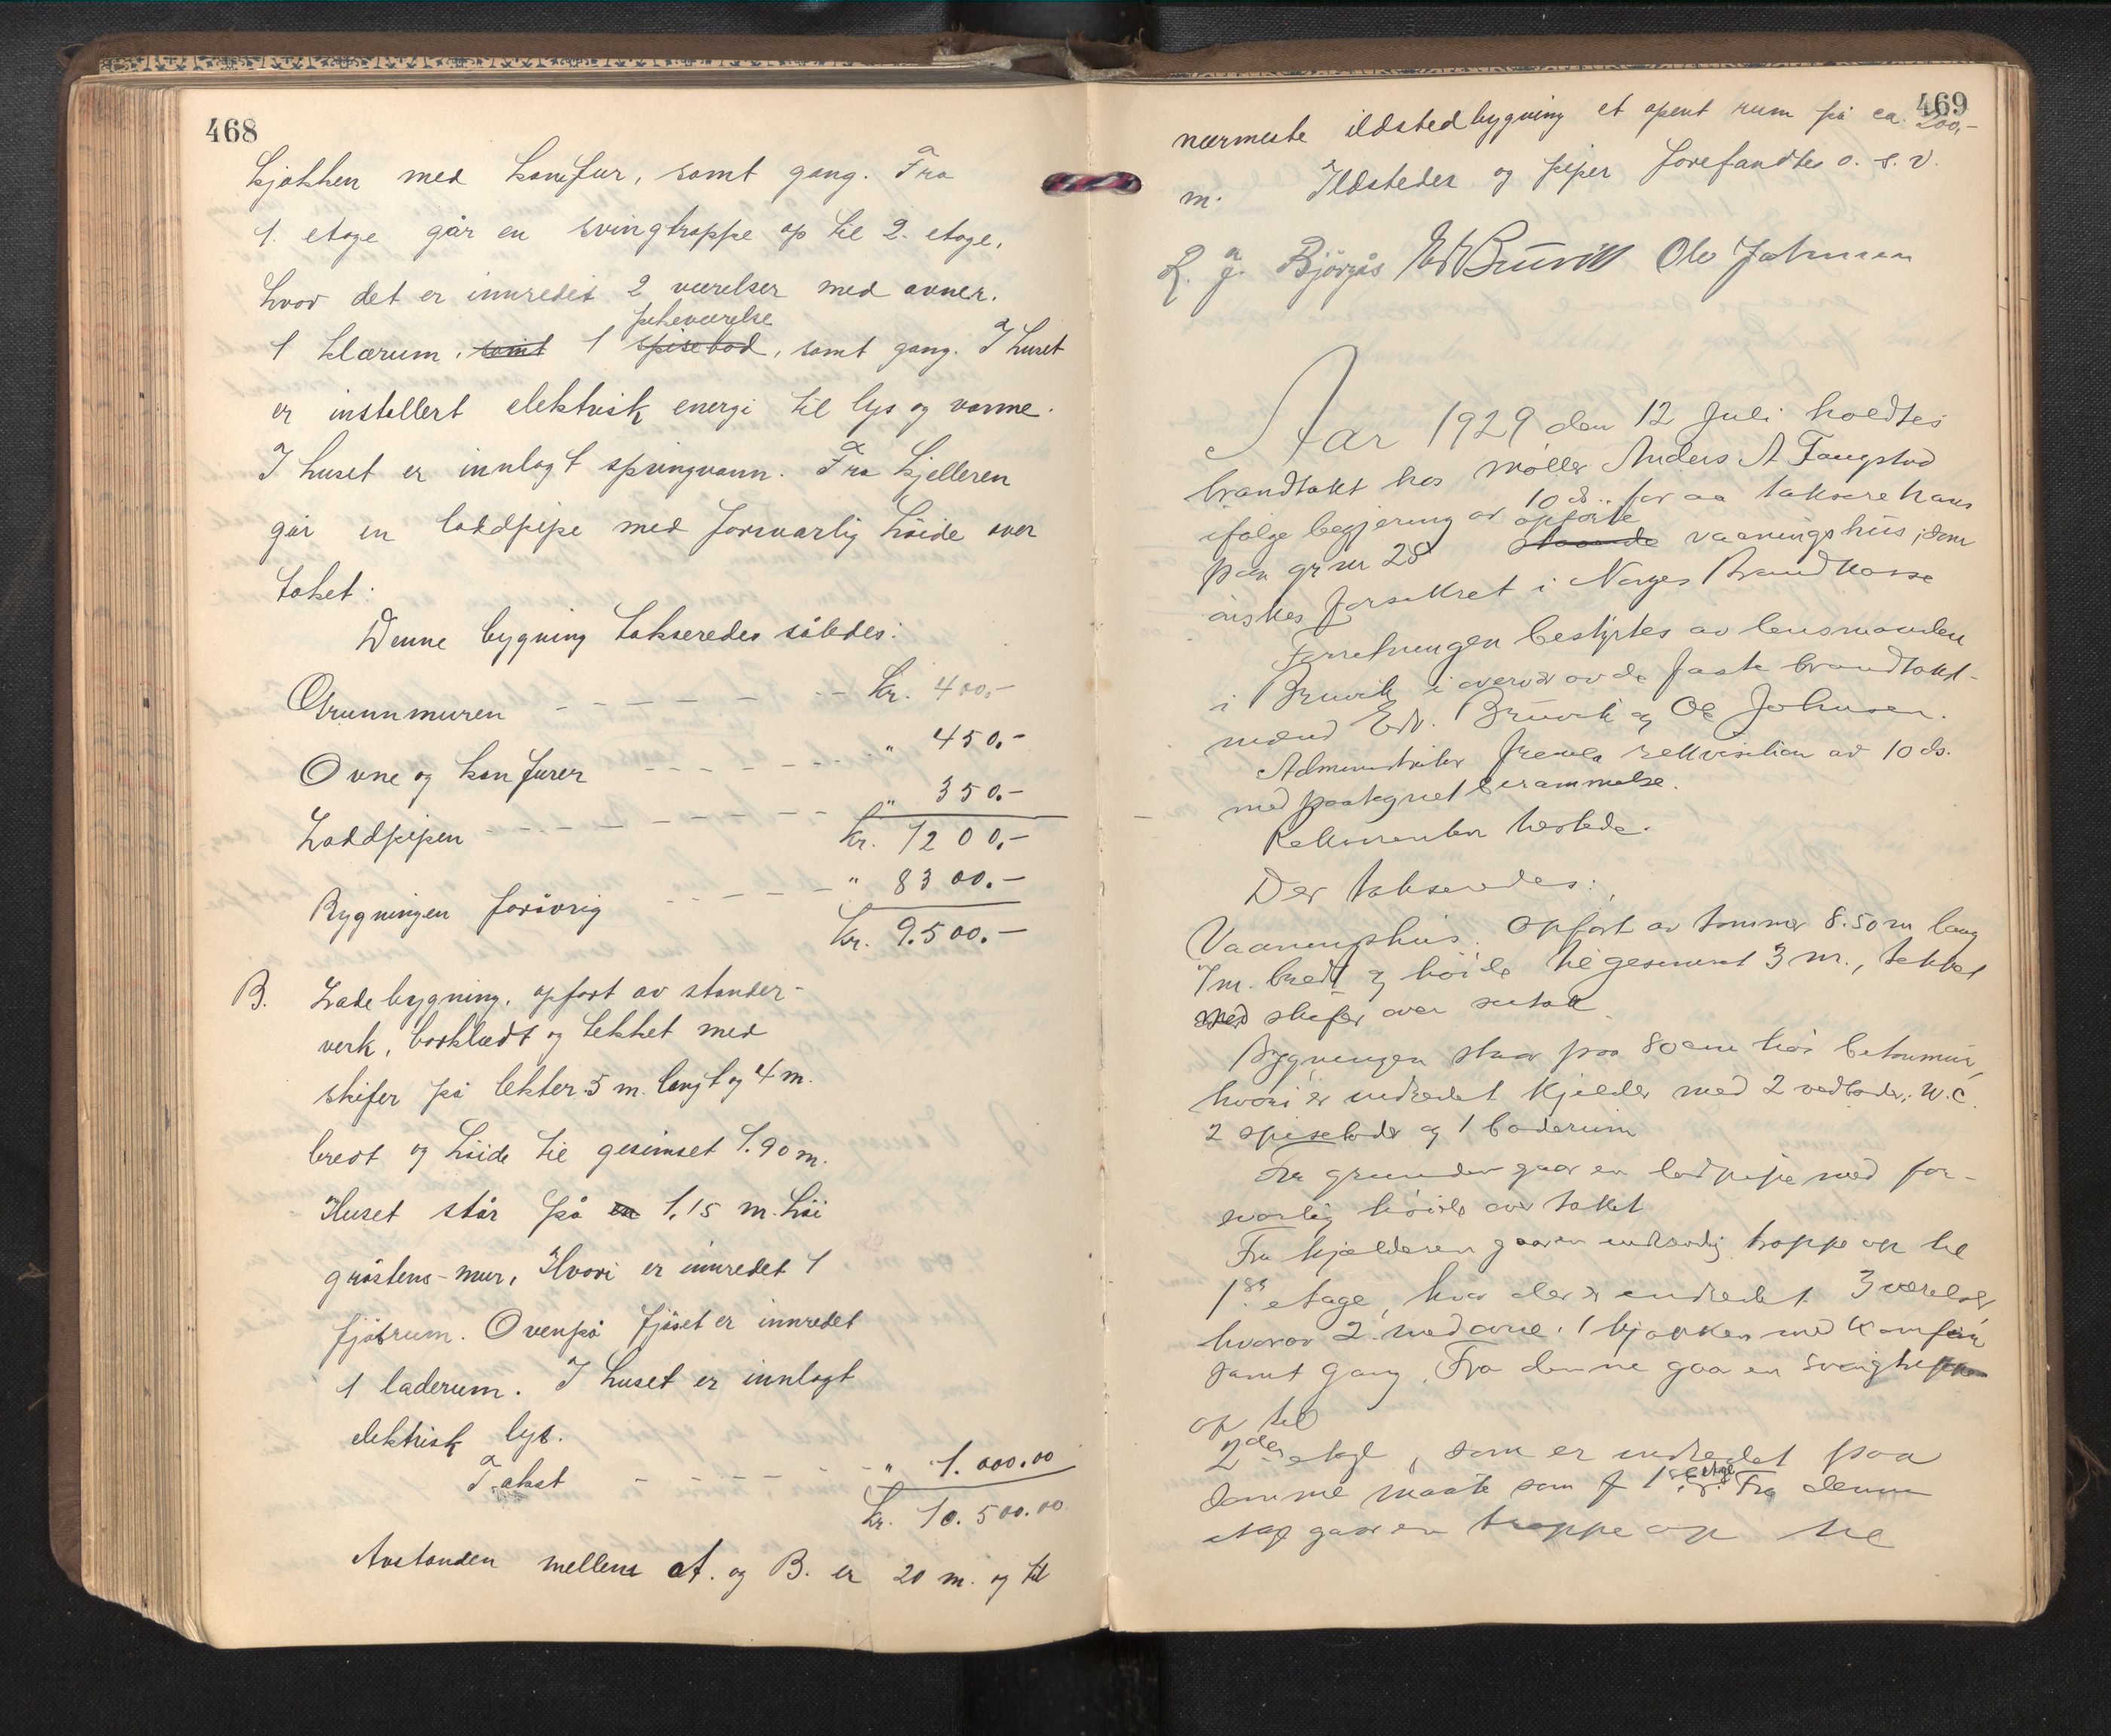 468
kjøkken med komfur, samt gang. Fra
1. etage går en svingtrappe op til 2. etage,
hvor det er innredet 2 værelser med ovner.
pikeværelse
1 klærum, samt 1 spisebod, samt gang. I huset
er installert elektrisk energi til lys og varme.
I huset er innlagt springvann. Fra kjelleren
går en loddpipe med forsvarlig höide over
taket.
Denne bygning takseredes således:
Grunnmuren - - - - - - - kr. 400,-
Ovne og komfurer - - - - - - " 450.-
Loddpipen - - - - - - - " 350.-
kr. 1200.-
Bygningen forövrig - - - - - " 8300.-
Kr. 9.500.-
B. Ladebygning, opfört av stender-
verk, bordklædt og tekket med
skifer på lekter 5 m. langt og 4 m.
bredt og höide til gesimset 1.90 m.
Huset står på en 1,15 m. höi
gråstens-mur, Hvori er innredet 1
fjösrum. Ovenpå fjöset er innredet
1 laderum. I huset er innlagt
elektrisk lys.
Takst - - - - - - " 1.000.00
Kr. 10.500.00
Avstanden mellem A. og B. er 20 m. og til
469
nærmeste ildstedbygning et åpent rum på ca. 200,-
m. Ildsteder og piper forefandtes o. s. v.
L. J. Björgås Edv Bruvik Ole Johnsen
Aar 1929 den 12 Juli holdtes
brandtakst hos möller Anders A Fangstad
ifölge begjering av 10 ds. for aa taksere hans
opförte
paa gr nr 28 staaende vaaningshus, som
önskes forsikret i Norges Brandkasse
Forretningen bestyrtes av lensmanden
i Bruvik i overvær av de faste brandtakst-
mænd Edv. Bruvik og Ole Johnsen.
Administrator fremla rekvisition av 10 ds.
med paategnet berammelse.
Rekvirenten tilstede.
Der takseredes:
Vaaningshus. Opfört av tömmer 8.50 m lang
7 m. bredt og höide til gesimset 3 m., tekket
med skifer over sutak.
Bygningen staar paa 80 cm höi betonmur,
hvori er indredet kjelder med 2 vedboder, W.C.
2 spiseboder og 1 baderum
Fra grunden gaar en lodpipe med for-
svarlig höide over taket
Fra kjælderen gaar en indvendig trappe op til
1ste etage, hvor der er indredet 3 værelser
hvorav 2 med ovne, 1 kjökken med komfür
samt gang. Fra denne gaar en svingtrappe
op til
2den etage, som er indredet paa
samme maate som 1ste etage. Fra denne
etage gaar en trappe op til